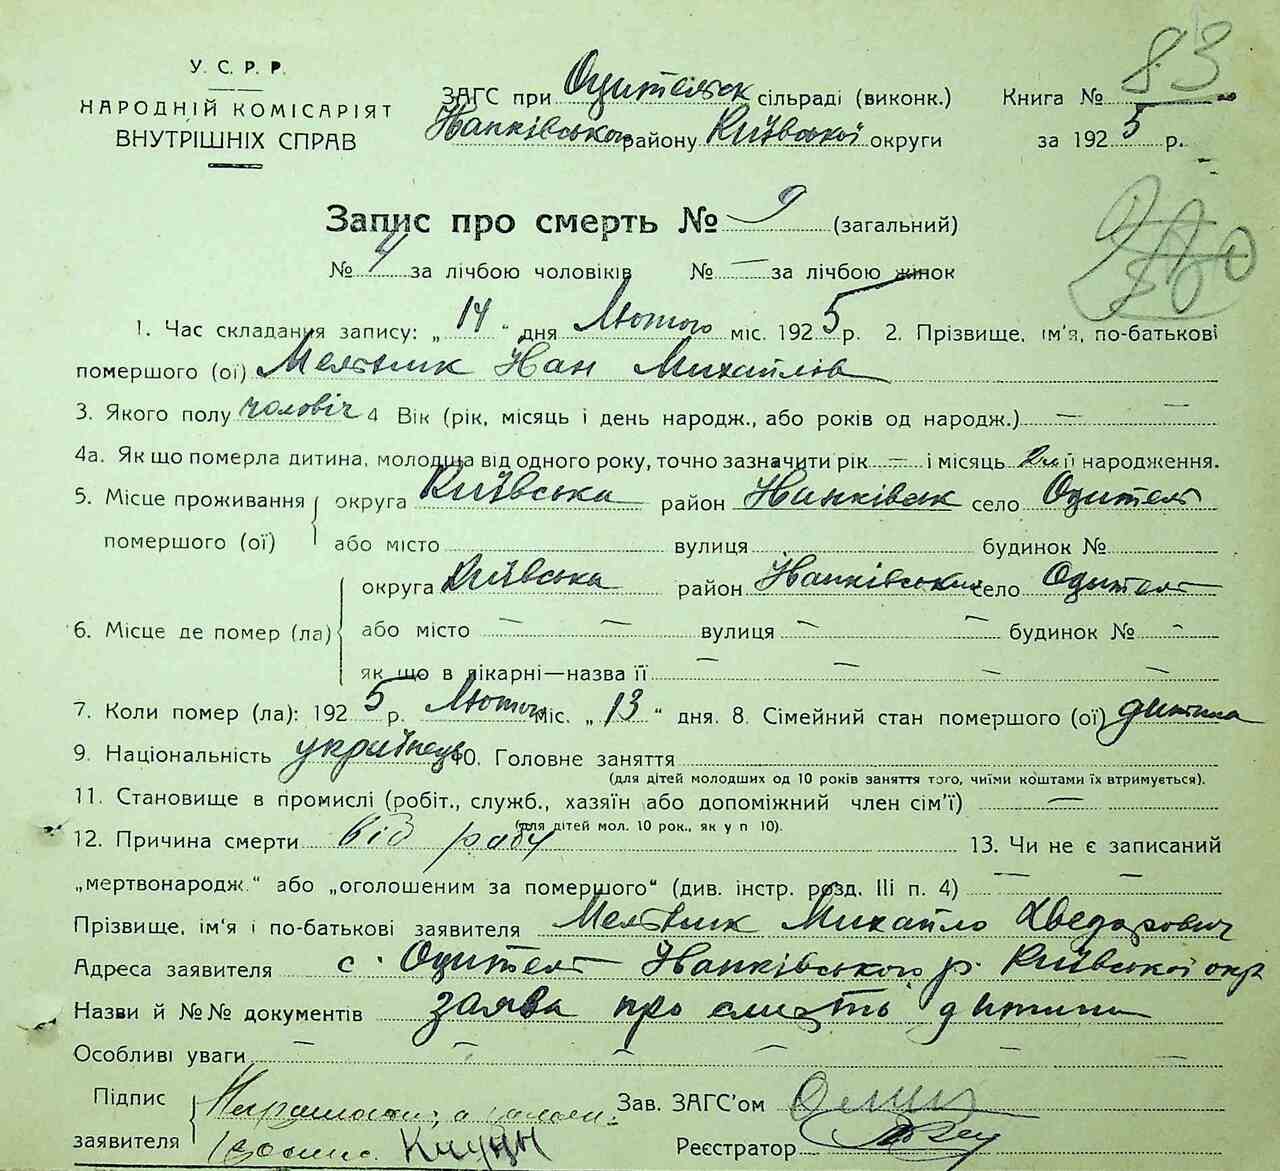 У. С. Р. Р.
НАРОДНІЙ КОМІСАРІЯТ
ВНУТРІШНІХ СПРАВ
ЗАГС при Одительск сільраді (виконк.)
району Київської округи
Книга № 83
за 1925 р.
Запис про смерть № 9 (загальний)
№ 4 за лічбою чоловіків № — за лічбою жінок
1. Час складання запису: „14“ дня Лютого міс. 1925 р. 2. Прізвище, ім'я, по-батькові
помершого (ої) Мельник Іван Михайлов
3. Якого полу чоловіч 4 Вік (рік, місяць і день народж., або років од народж.) — —
4а. Як що померла дитина, молодша від одного року, точно зазначити рік — і місяць її народження.
5. Місце проживання помершого (ої) округа Київська район село Одитель
або місто вулиця будинок №
6. Місце де помер (ла) округа Київська район село Одитель
або місто — — вулиця — — будинок № -
як що в лікарні—назва її — — — —
7. Коли помер (ла): 1925 р. Лютого міс. „13“ дня. 8. Сімейний стан помершого (ої) дитина
9. Національність українець 10. Головне заняття
(для дітей молодших од 10 років заняття того, чиїми коштами їх втримується).
11. Становище в промислі (робіт., служб., хазяїн або допоміжний член сім'ї) —
(для дітей мол. 10 рок., як у п 10).
12. Причина смерти від 13. Чи не є записаний
„мертвонародж.“ або „оголошеним за помершого“ (див. інстр. розд. III п. 4) — —
Прізвище, ім'я і по-батькові заявителя Мельник Михайло Хведорович
Адреса заявителя с. Одитель р. Київської окр
Назви й №№ документів заява про смерть дитини
Особливі уваги — — — — — —
Підпис заявителя
Зав. ЗАГС'ом
Реєстратор